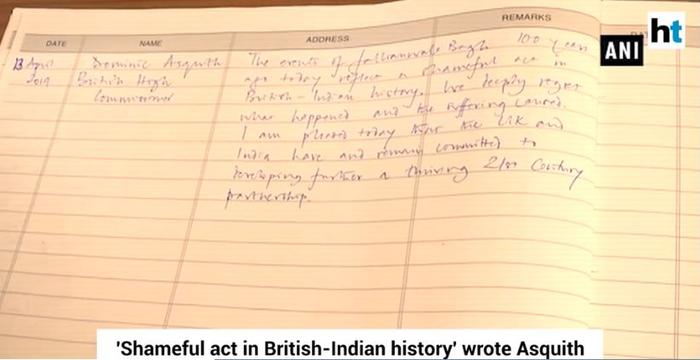 DATE NAME ADDRESS REMARKS
13 April Dominic Asquith The events of Jallianwala Bagh 100 years
2019 British High ago today reflect a shameful act in
Commissioner British-Indian history. We deeply regret
what happened and the suffering caused.
I am pleased today that the UK and
India have and remain committed to
developing further a thriving 21st Century
partnership.
ANI
ht
'Shameful act in British-Indian history' wrote Asquith